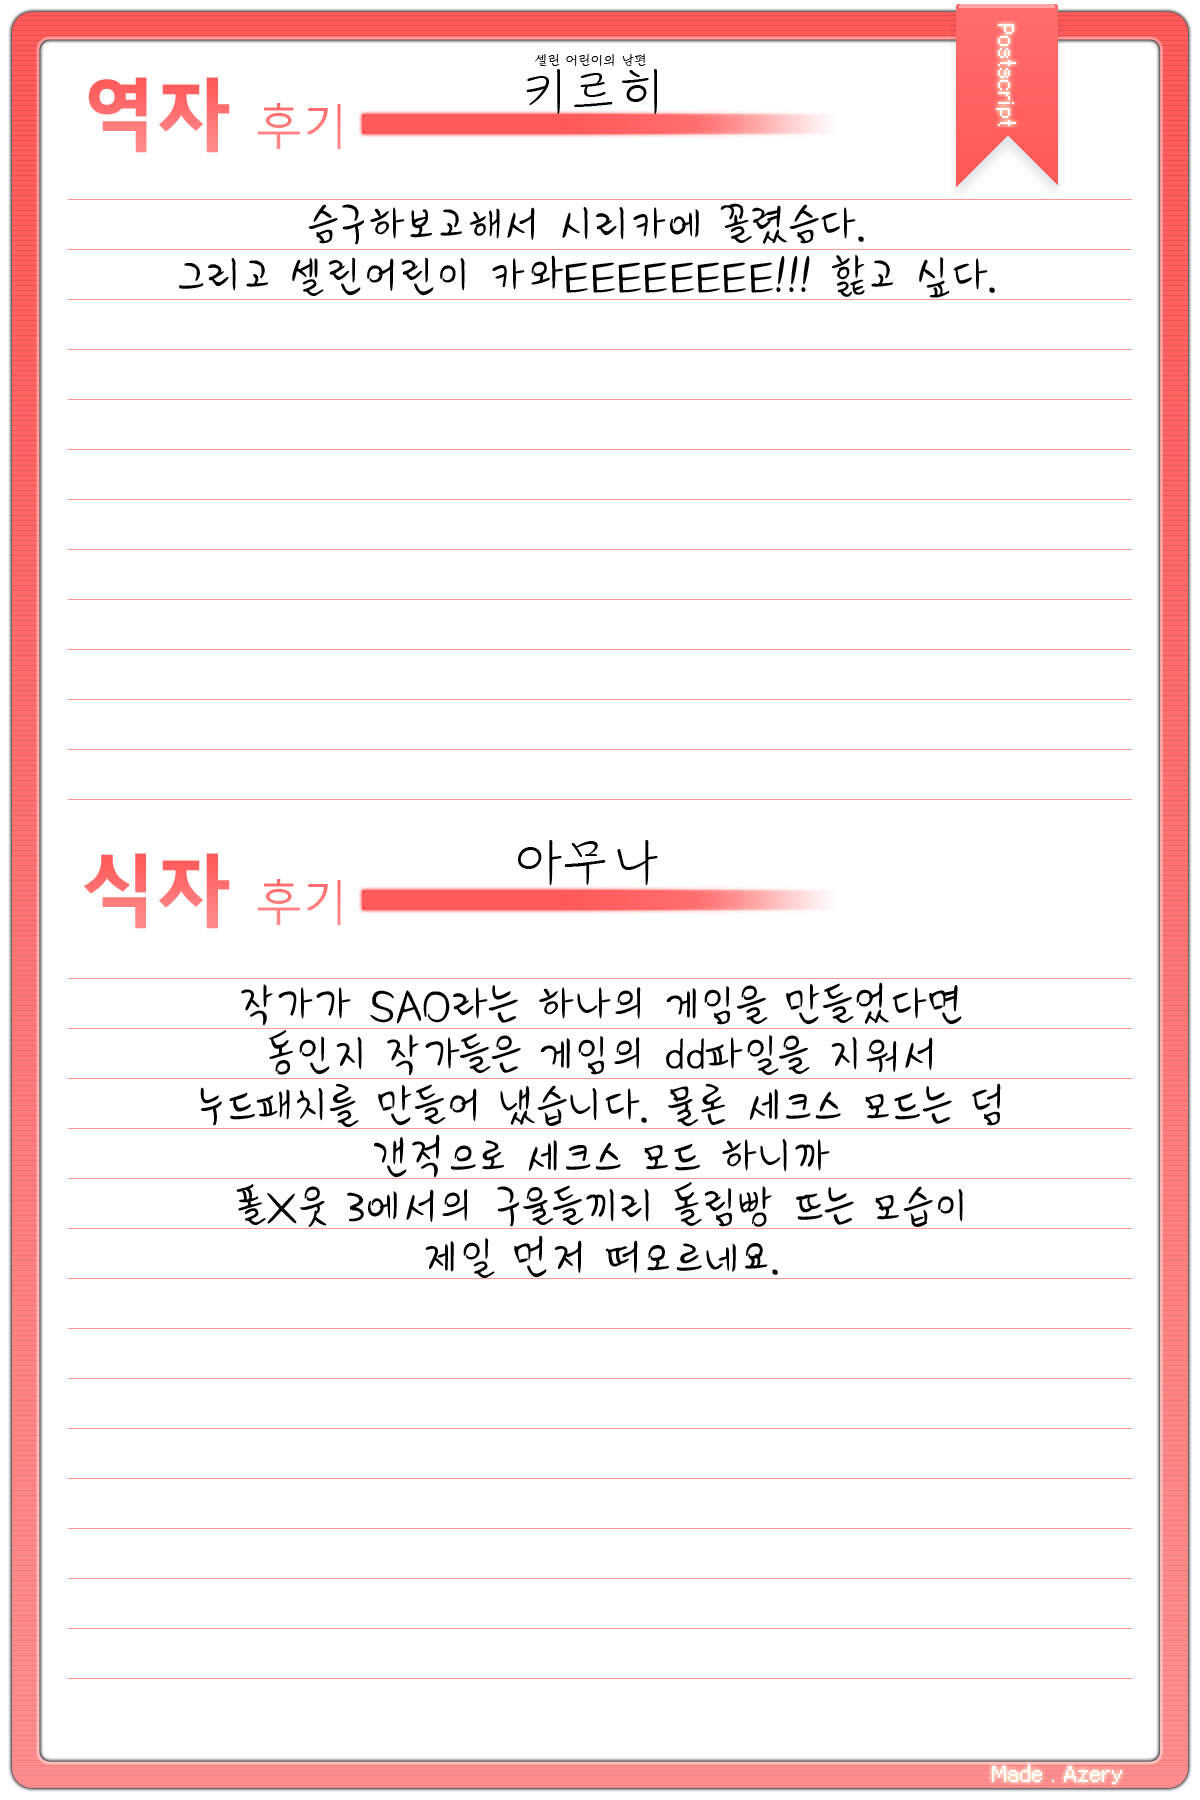 Postscript
역자 후기
셀린 어린이의 남편
키르히
슴구하보고해서 시리카에 꼴렸슴다.
그리고 셀린어린이 카와EEEEEEEE!!! 핥고 싶다.
식자 후기
아무나
작가가 SAO라는 하나의 게임을 만들었다면
동인지 작가들은 게임의 dd파일을 지워서
누드패치를 만들어 냈습니다. 물론 세크스 모드는 덤
갠적으로 세크스 모드 하니까
폴X웃 3에서의 구울들끼리 돌림빵 뜨는 모습이
제일 먼저 떠오르네요.
Made . Azery